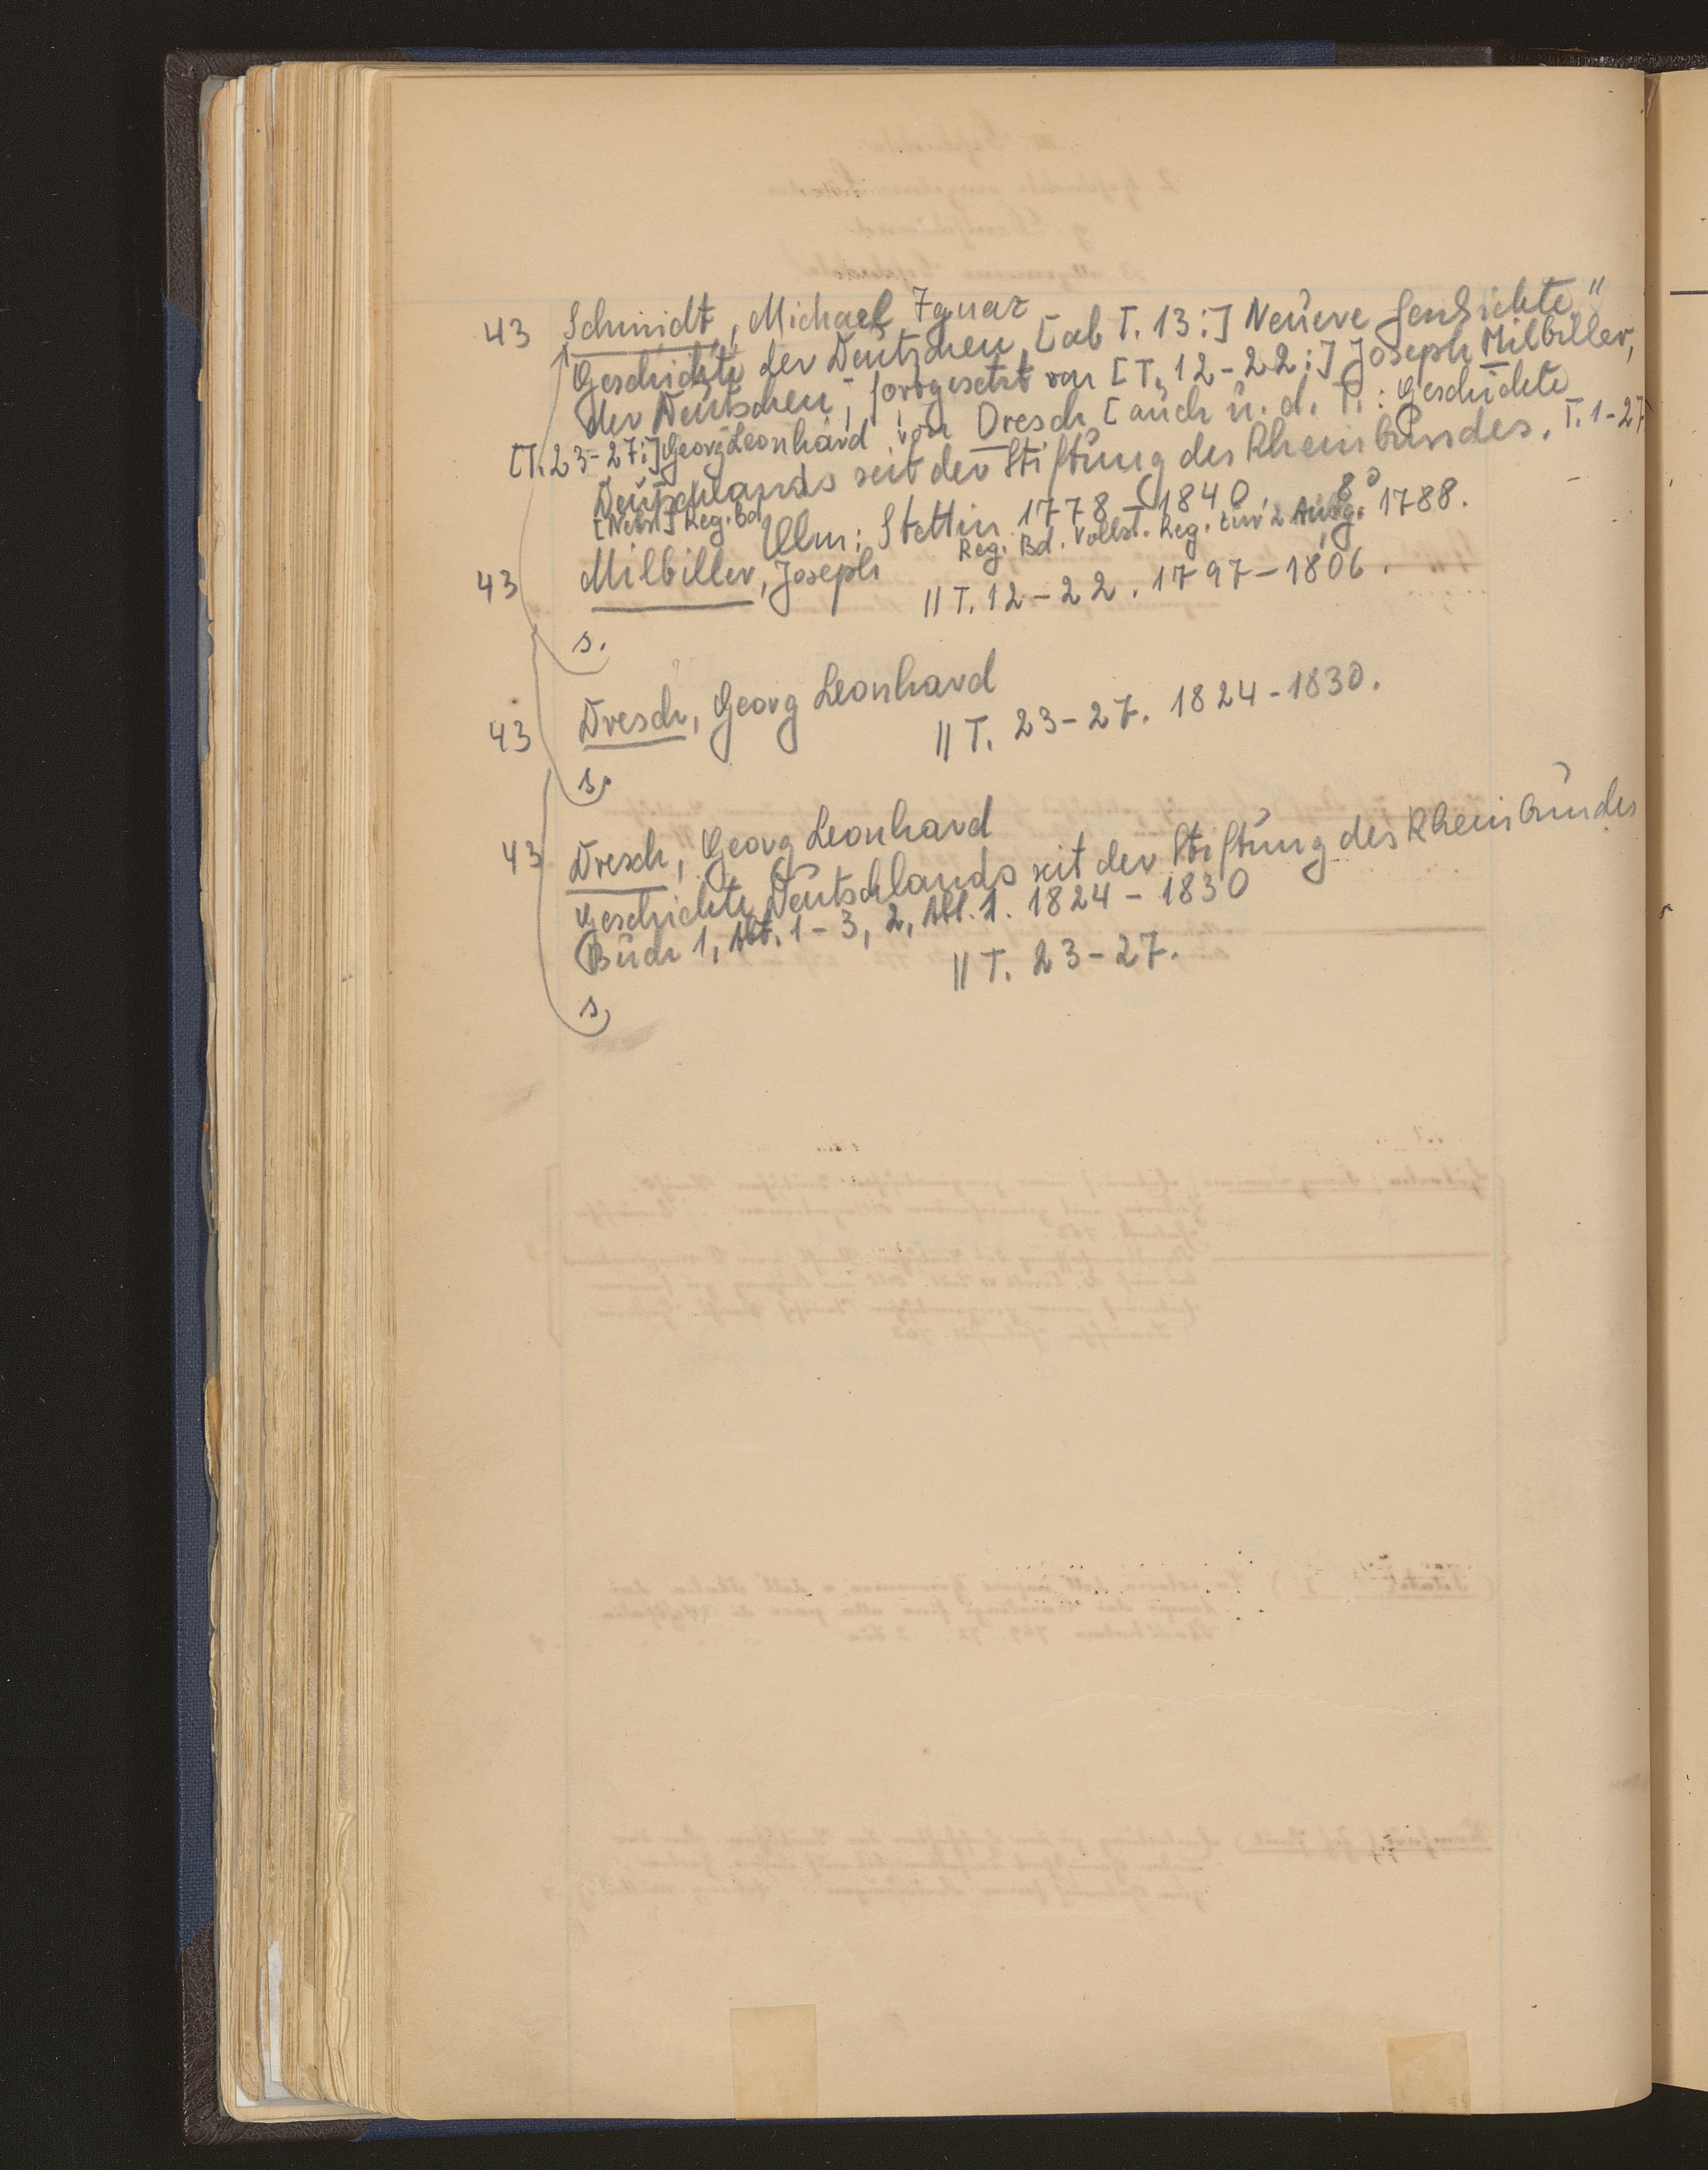 43 Schmidt, Michael Ignaz
Geschichte der Deutschen, [ab T. 13:] Neuere Geschichte"
der Deutschen; fortgesetzt von [T. 12-22:] Joseph Milbiller,
[T. 23-27:] Georg Leonhard von Dresch [auch u. d. T.: Geschichte
Deutschlands seit der Stiftung des Rheinbundes. T. 1-27
[Nebst] Reg. Bd. Ulm: Stettin 1778-1840. 8°
Reg. Bd. Vollst. Reg. zur 2 Ausg. 1788.
43 Milbiller, Joseph
// T. 12-22. 1797-1806.
s.
43 Dresch, Georg Leonhard
// T. 23-27. 1824-1830.
s.
43 Dresch, Georg Leonhard
Geschichte Deutschlands seit der Stiftung des Rheinbundes
Buch 1, Abt. 1-3, 2, Abt. 1. 1824-1830
// T. 23-27.
s.